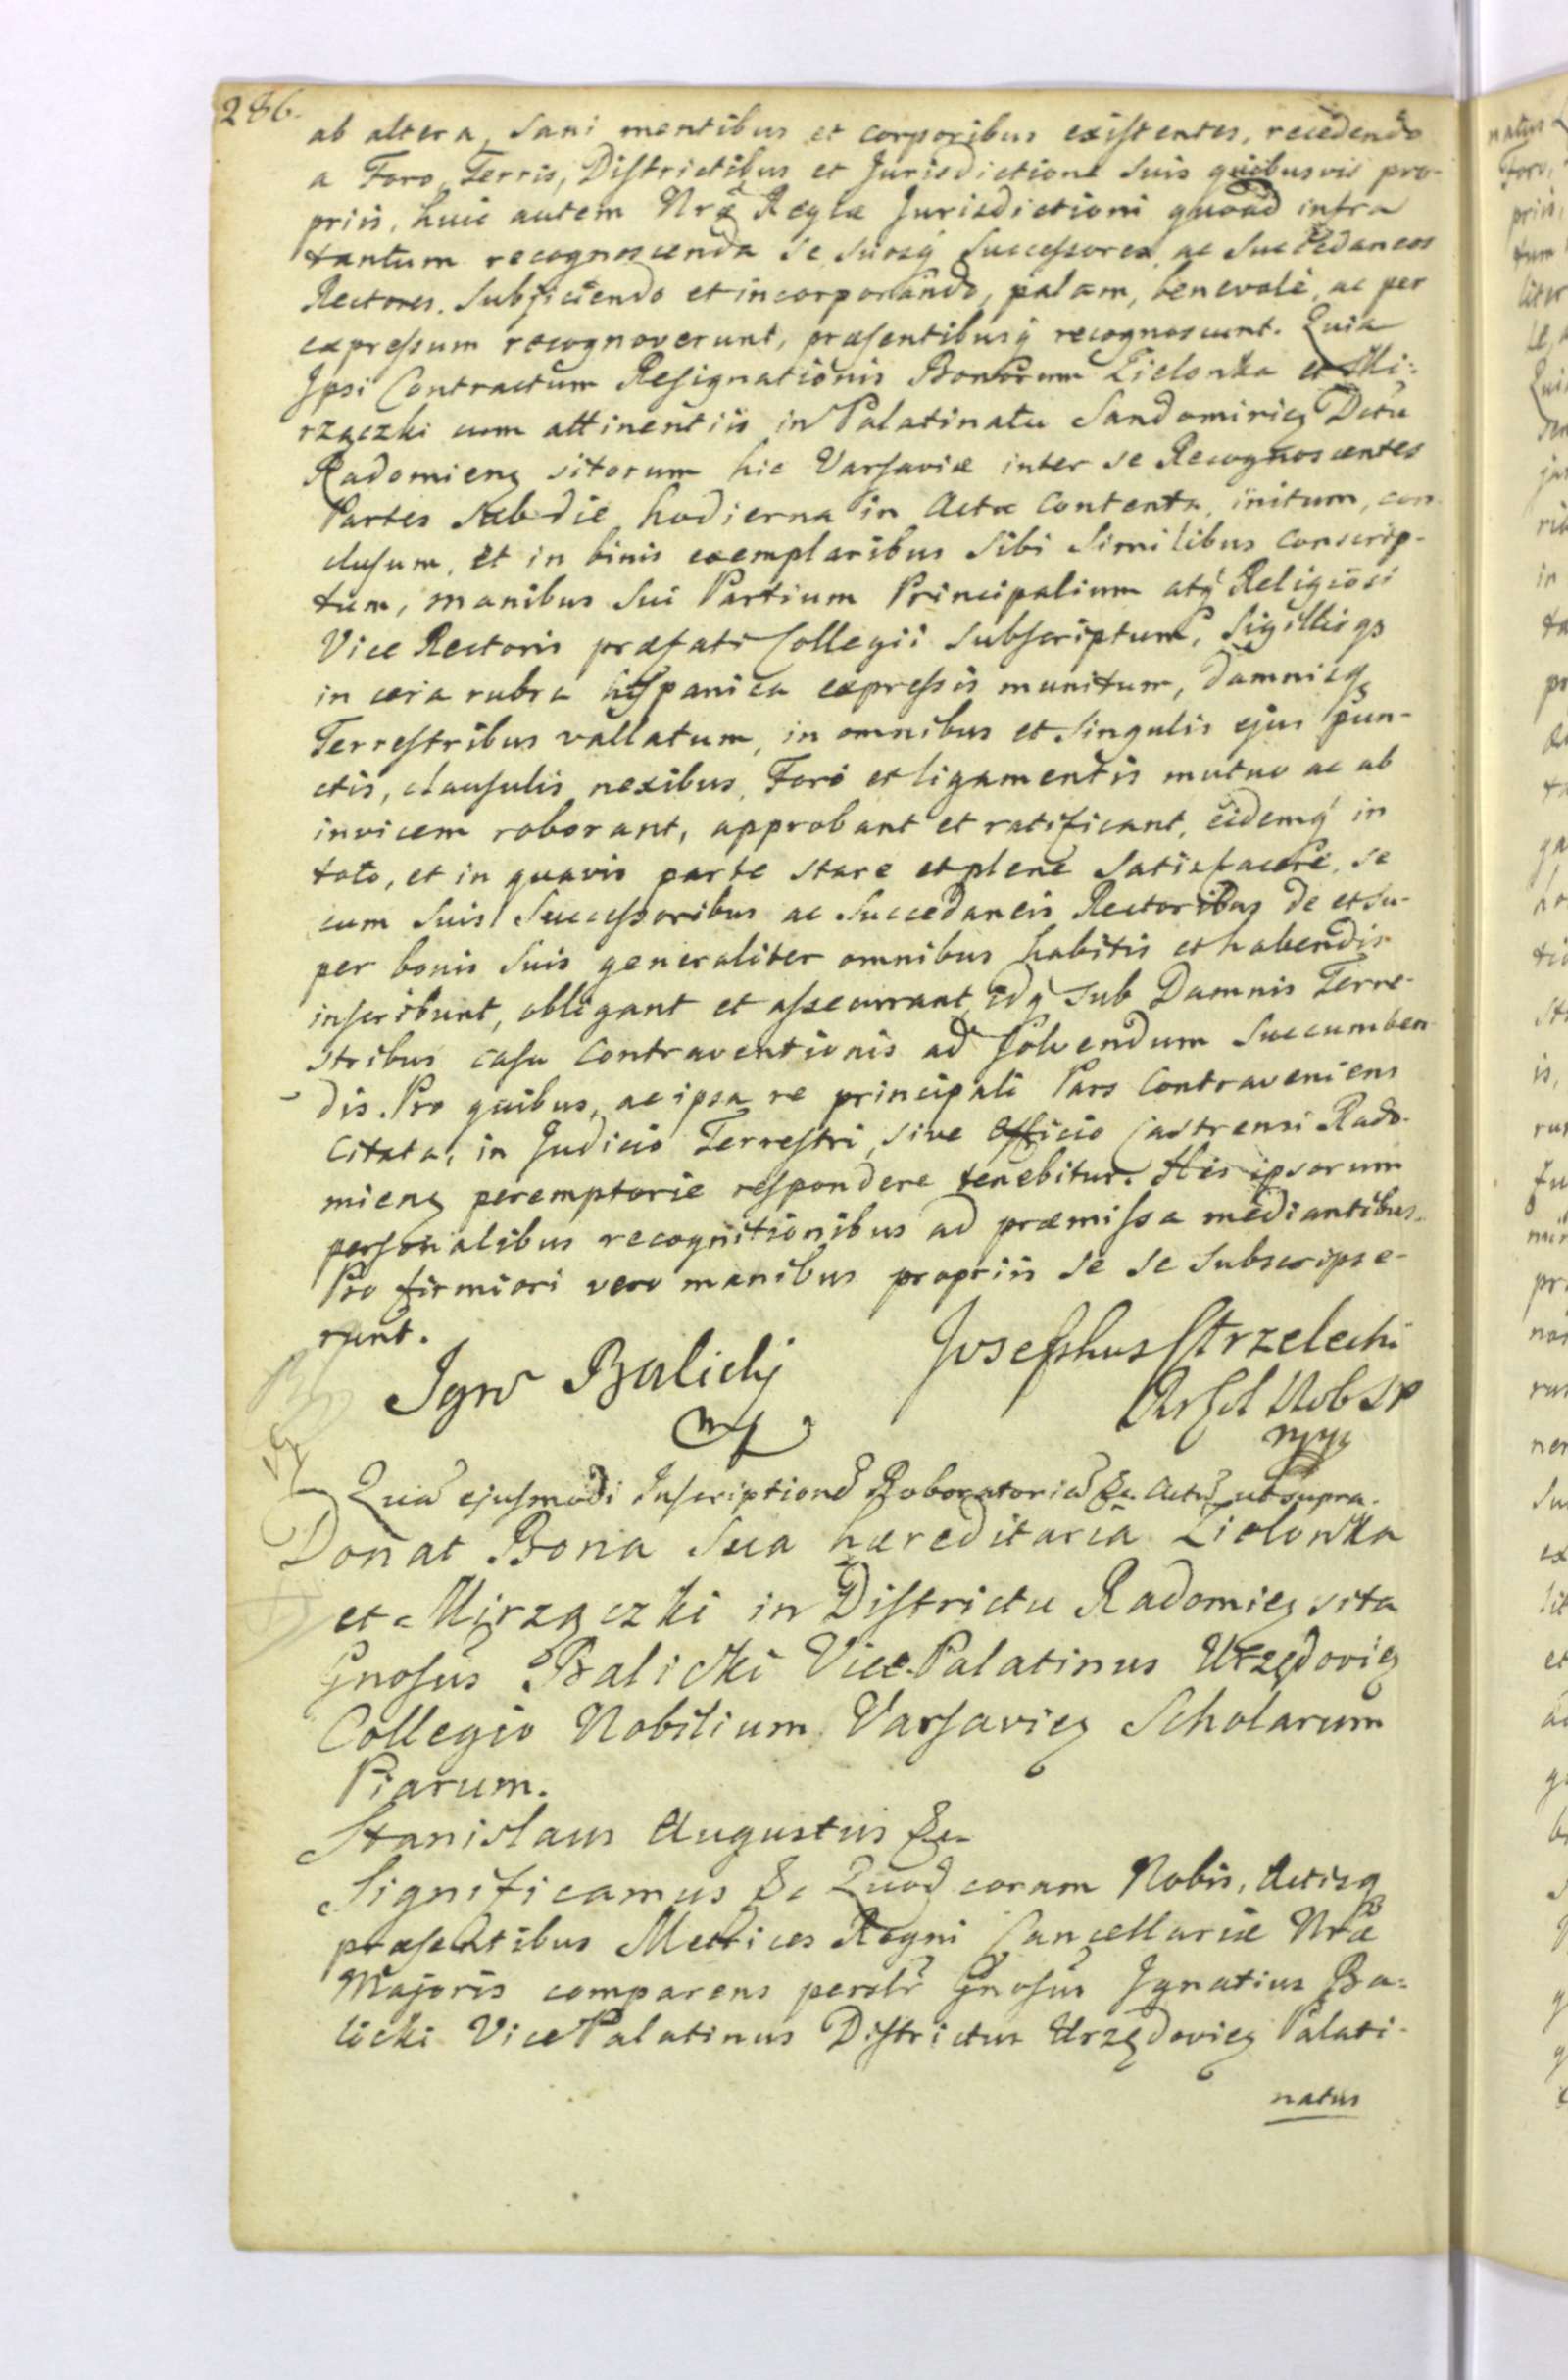 286.
ab altera, sani mentibus et corporibus existentes, recedendo
a Foro, Terris, Districtibus et Jurisdictione suis quibusvis pro-
priis, huic autem Nræ Regiæ Jurisdictioni quoad infra
tantum recognoscenda se suosq́ Successores ac Succedaneos
Rectores. Subjiciendo et incorporando, palam, benevolè, ac per
expressum recognoverunt, præsentibusq́ recognoscunt. Quia
Ipsi Contractum Resignationis Bonorum Zielonka et Mi:
rzączki cum attinentiis in Palatinatu Sandomirieɳ Dctu
Radomienɳ sitorum hic Varsaviæ inter se Recognoscentes
Partes sub die hodierna in Actu Contenta, initum, con
clusum, et in binis exemplaribus sibi similibus conscrip-
tum, manibus sui Partium Principalium atq́ Religiosi
Vice Rectoris præfati Collegii subscriptum, Sigillisqɜ
in cera rubra hispanica expressis munitum, damnisqɜ
Terrestribus vallatum, in omnibus et singulis ejus pun-
ctis, clausulis nexibus, Fori et ligamentis mutuo ac ab
invicem roborant, approbant et ratificant, eidemq́ in
toto, et in quavis parte stare et plene satisfacere, se
cum suis Successoribus ac Succedaneis Rectoribus de et su-
per bonis suis generaliter omnibus habitis et habendis
inscribunt, obligant et assecurant, idq́ sub Damnis Terre-
stribus casu contraventionis ad solvendum succumben
dis. Pro quibus, ac ipsa re principali Pars Contraveniens
Citata, in Judicio Terrestri, sive Officio Castrensi Rado-
mienɳ peremptorie respondere tenebitur. His ipsorum
personalibus recognitionibus ad præmissa mediantibus.
Pro firmiori vero manibus propriis se se subscripse-
runt.
Josephus Strzelecki
Ign Balicki
mp
Quæ ejusmodi Inscriptione Roboratoria &c. Actu ut supra.
Donat Bona sua hæreditaria Zielonka
et Mirzączki in Districtu Radomieɳ sita
Gnosus Balicki Vice Palatinus Urzędovieɳ
Collegio Nobilium Varsavieɳ Scholarum
Piarum.
Stanislaus Augustus &c.
Significamus &c Quod coram Nobis, Actisq
præsentibus Metrices Regni Cancellariæ Nræ
Majoris comparens persolr Gnosus Ignatius Ba:
licki Vice Palatinus Districtus Urzędovieɳ Palati-
natus